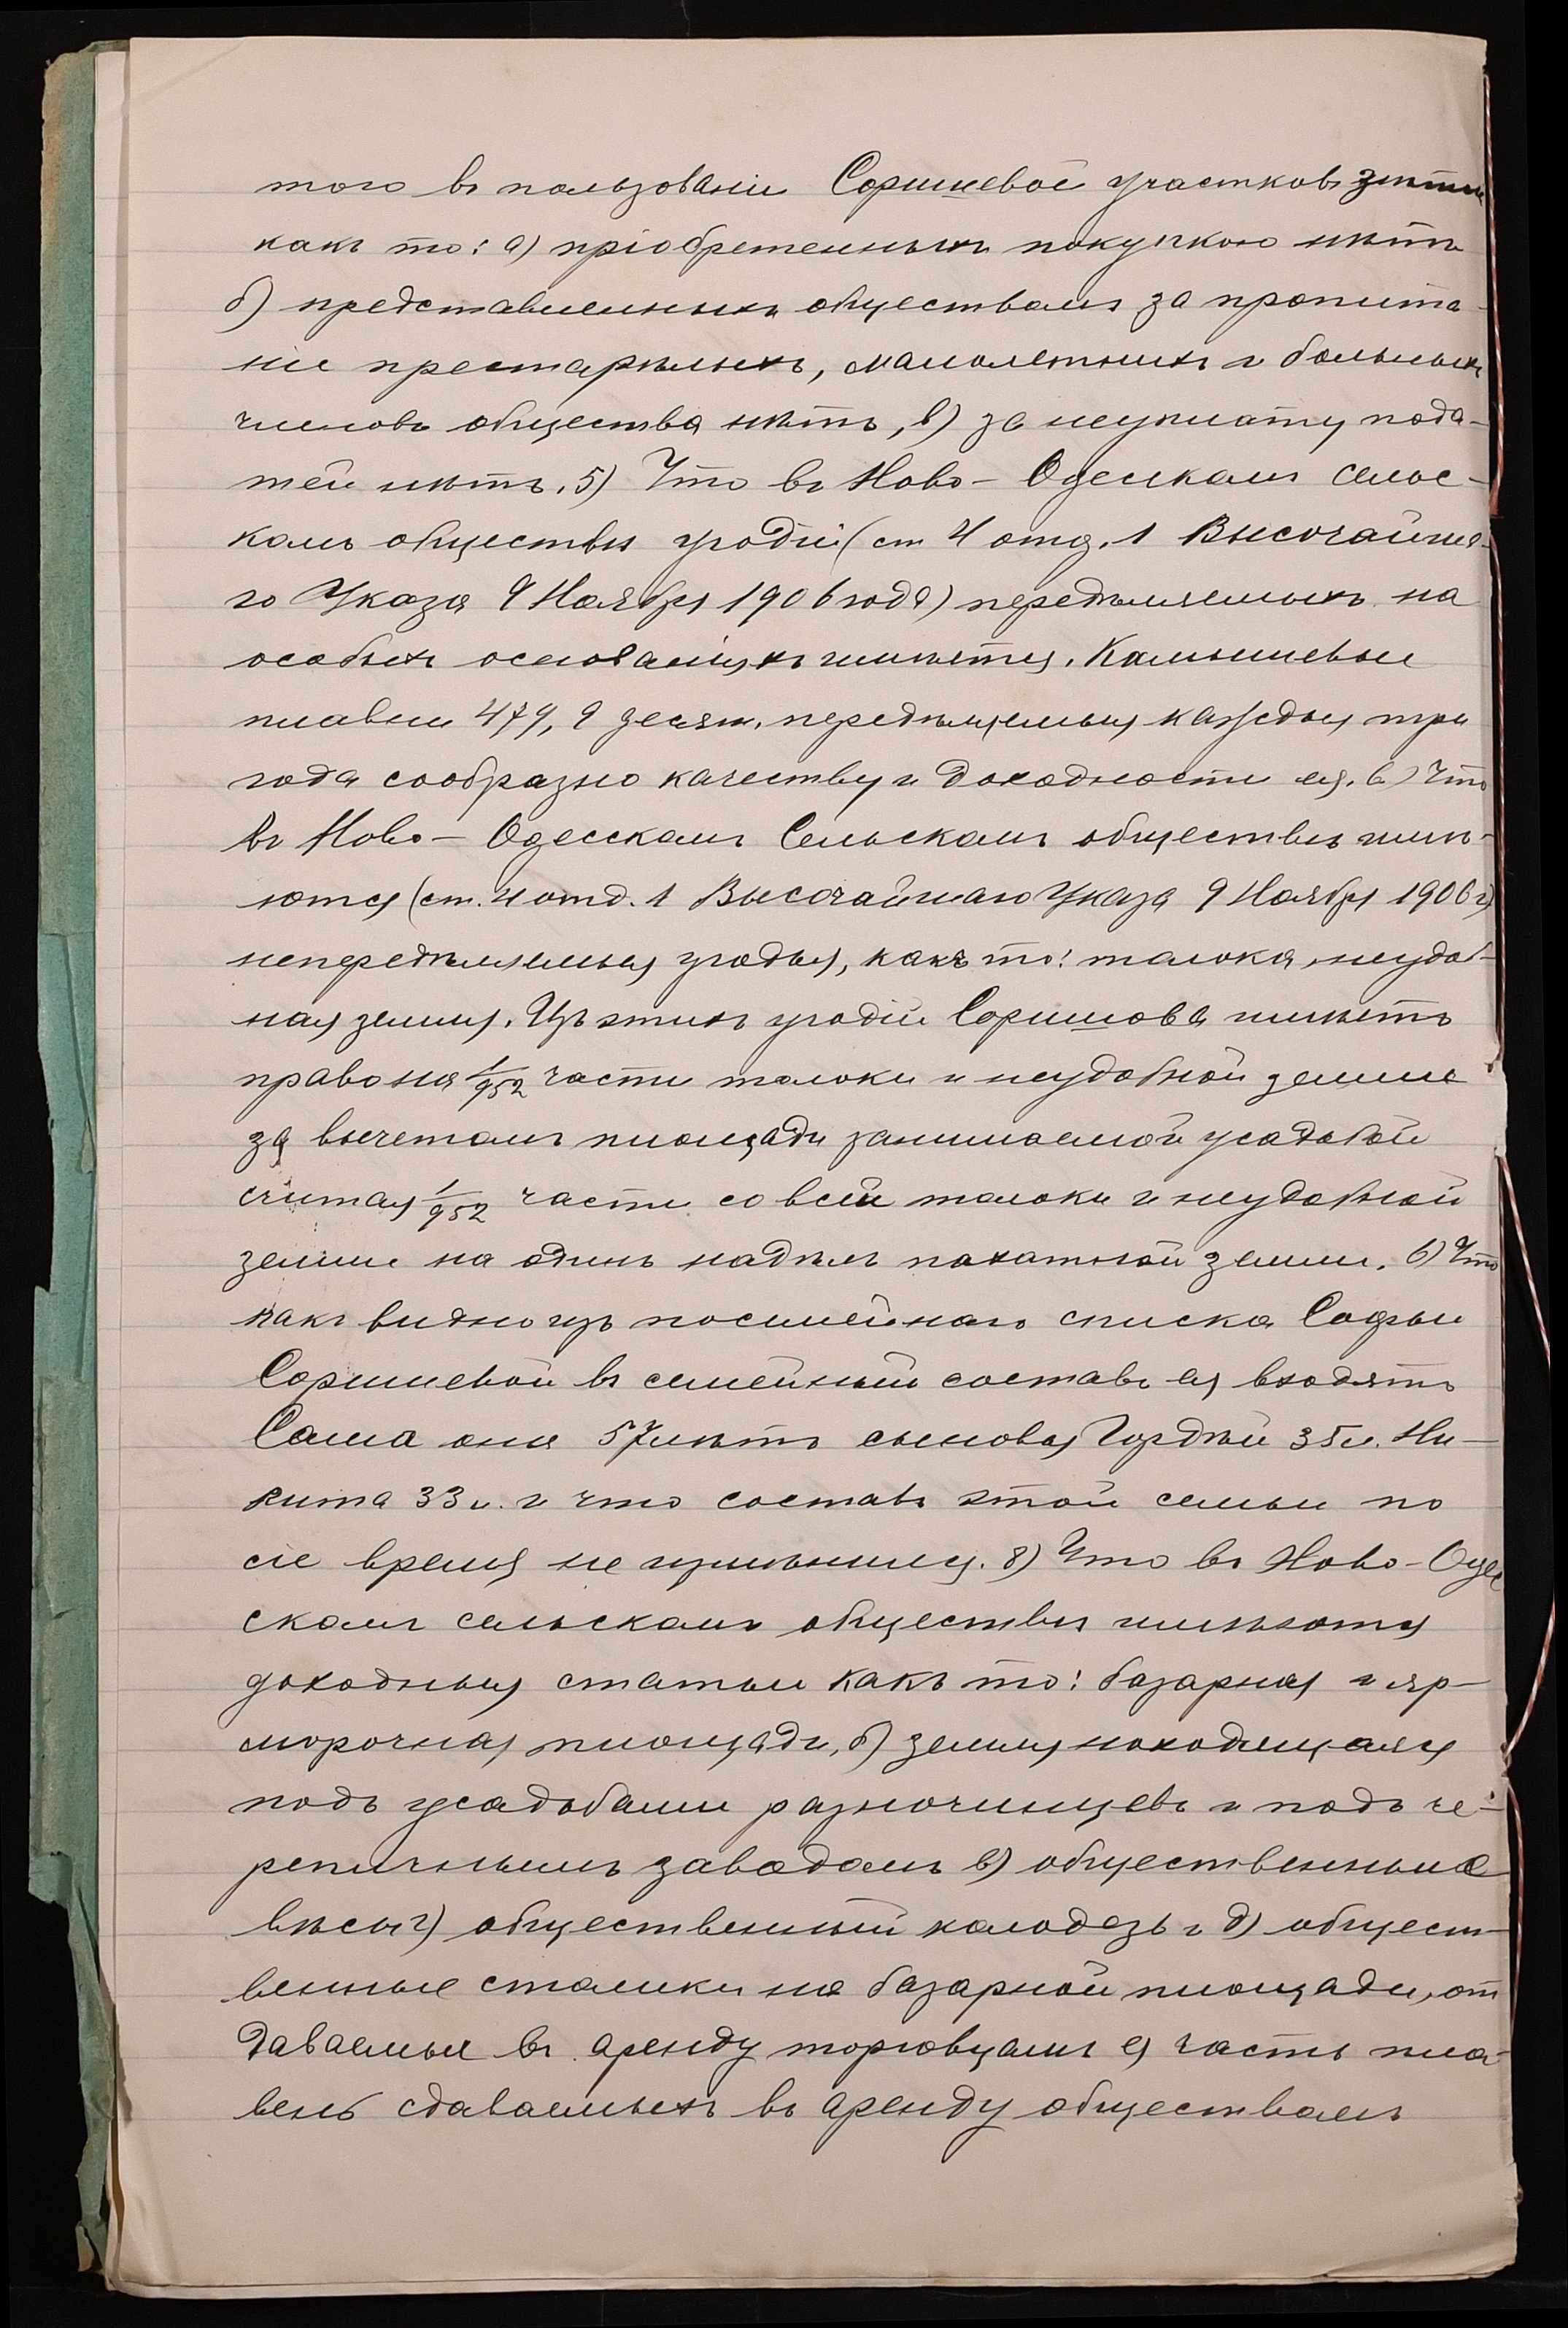 того въ пользованіи Соришевой участковъ земли
какъ то: а) пріобретенныхъ покупкою нѣтъ
б) представленныхъ обществомъ за пропита-
ніе престарѣлыхъ, малолетнихъ и больныхъ
членовъ общества нѣтъ, в) за неуплату пода-
тей нѣтъ. 5) Что въ Ново-Одесскомъ сельс-
комъ обществѣ угодій (ст 4 отд. 1 Высочайша-
го Указа 9 Ноября 1906 года) передѣляемыхъ на
особыхъ основаніяхъ имѣется. Камышевые
плавни 479,9 десят. передѣляемыя каждыя три
года сообразно качеству и доходности ея. 6) Что
въ Ново-Одесскомъ Сельскомъ обществѣ имѣ-
ются (ст. 4 отд. 1 Высочайшаго Указа 9 Ноября 1906 г)
непередѣляемыя угодья, какъ то: толока, неудоб-
ная земля. Изъ этихъ угодій Соришова имѣетъ
право на 1/952 части толоки и неудобной земли
за вычетомъ площади занимаемой усадьбой
считая 1/952 части со всей толоки и неудобной
земли на одинъ надѣлъ пахатной земли. 6) Что
какъ видно изъ посемейнаго списка Софьи
Соришевой въ семейный составъ ея входятъ
Сама она 57 лѣтъ сыновья Гордѣй 35 л. Ни-
кита 33 л. и что составъ этой семьи по
сіе время не измѣнился. 8) Что въ Ново-Одес
скомъ сельскомъ обществѣ имѣются
доходныя статьи какъ то: базарная и яр-
морочная площади, б) земля находящаяся
подъ усадьбами разночинцевъ и подъ че-
репичнымъ заводомъ в) общественные
вѣсы г) общественный колодезь и д) общест-
венные столики на базарной площади, от
даваемые въ аренду торговцамъ е) часть пла-
вень сдаваемыхъ въ аренду обществомъ